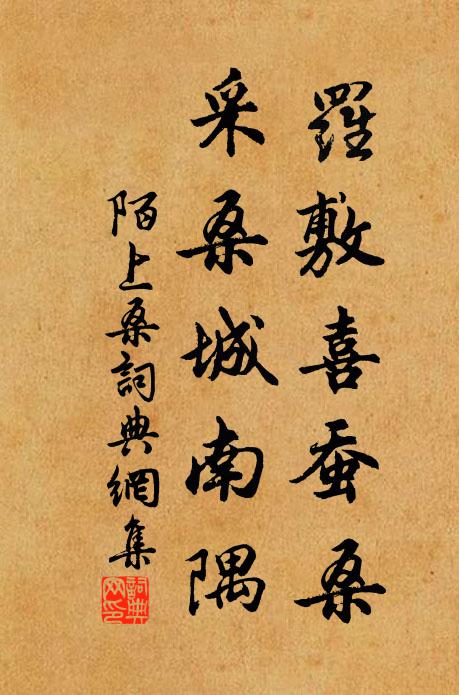 羅敷喜蚕桑
采桑城南隅
陌上桑詞典網集
詞典網印